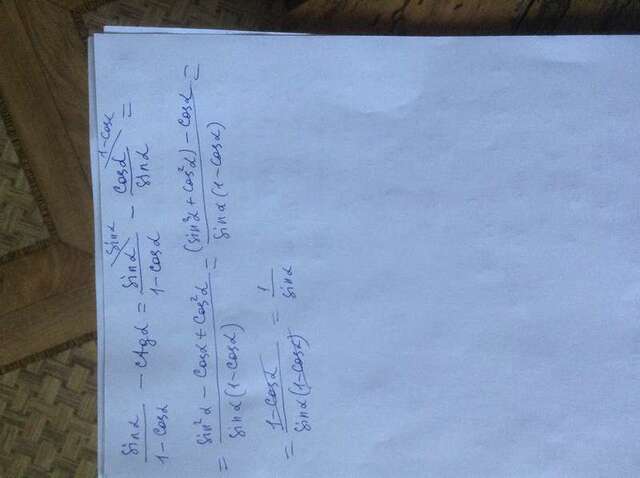 sinα/(1-cosα) - ctgα = sinα^(sinα)/(1-cosα) - cosα^(1-cosα)/sinα =
= (sin²α - cosα + cos²α)/(sinα(1-cosα)) = ((sin²α + cos²α) - cosα)/(sinα(1-cosα)) =
= (1-cosα)/(sinα(1-cosα)) = 1/sinα